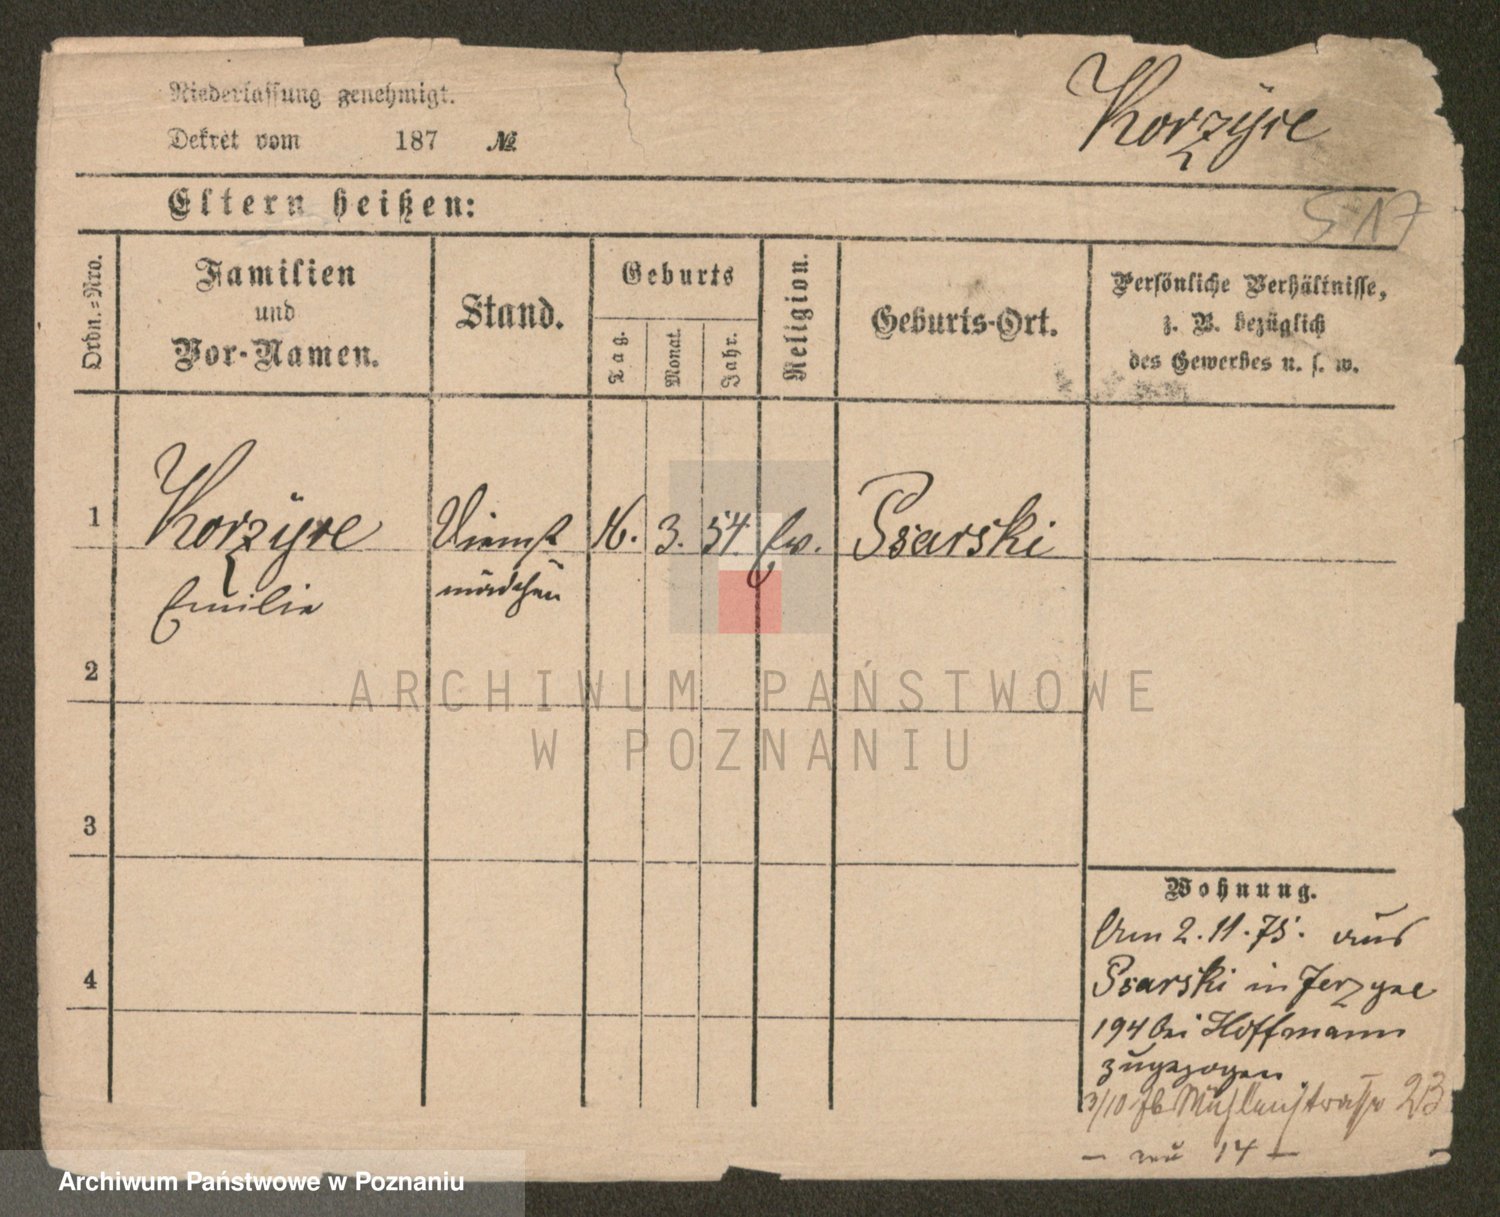 Niederlassung genehmigt.
Dekret vom 187 №
Korzyre
517
Eltern heißen:
Ordn.-Nro.
Familien
und
Vor-Namen.
Stand.
Geburts
Tag.
Monat.
Jahr.
Religion.
Geburts-Ort.
Persönliche Verhältnisse,
z. B. bezüglich
des Gewerbes u. s. w.
1 Korzyre Dienst 16. 3. 54. Ev. Psarski
Emilie mädchen
2
3
4
ARCHIWUM PAŃSTWOWE
W POZNANIU
Wohnung.
Am 2.11.75. aus
Psarski in
194 bei Hoffmann
zugezogen
3/10 76 Mühlenstraße 23
14
Archiwum Państwowe w Poznaniu